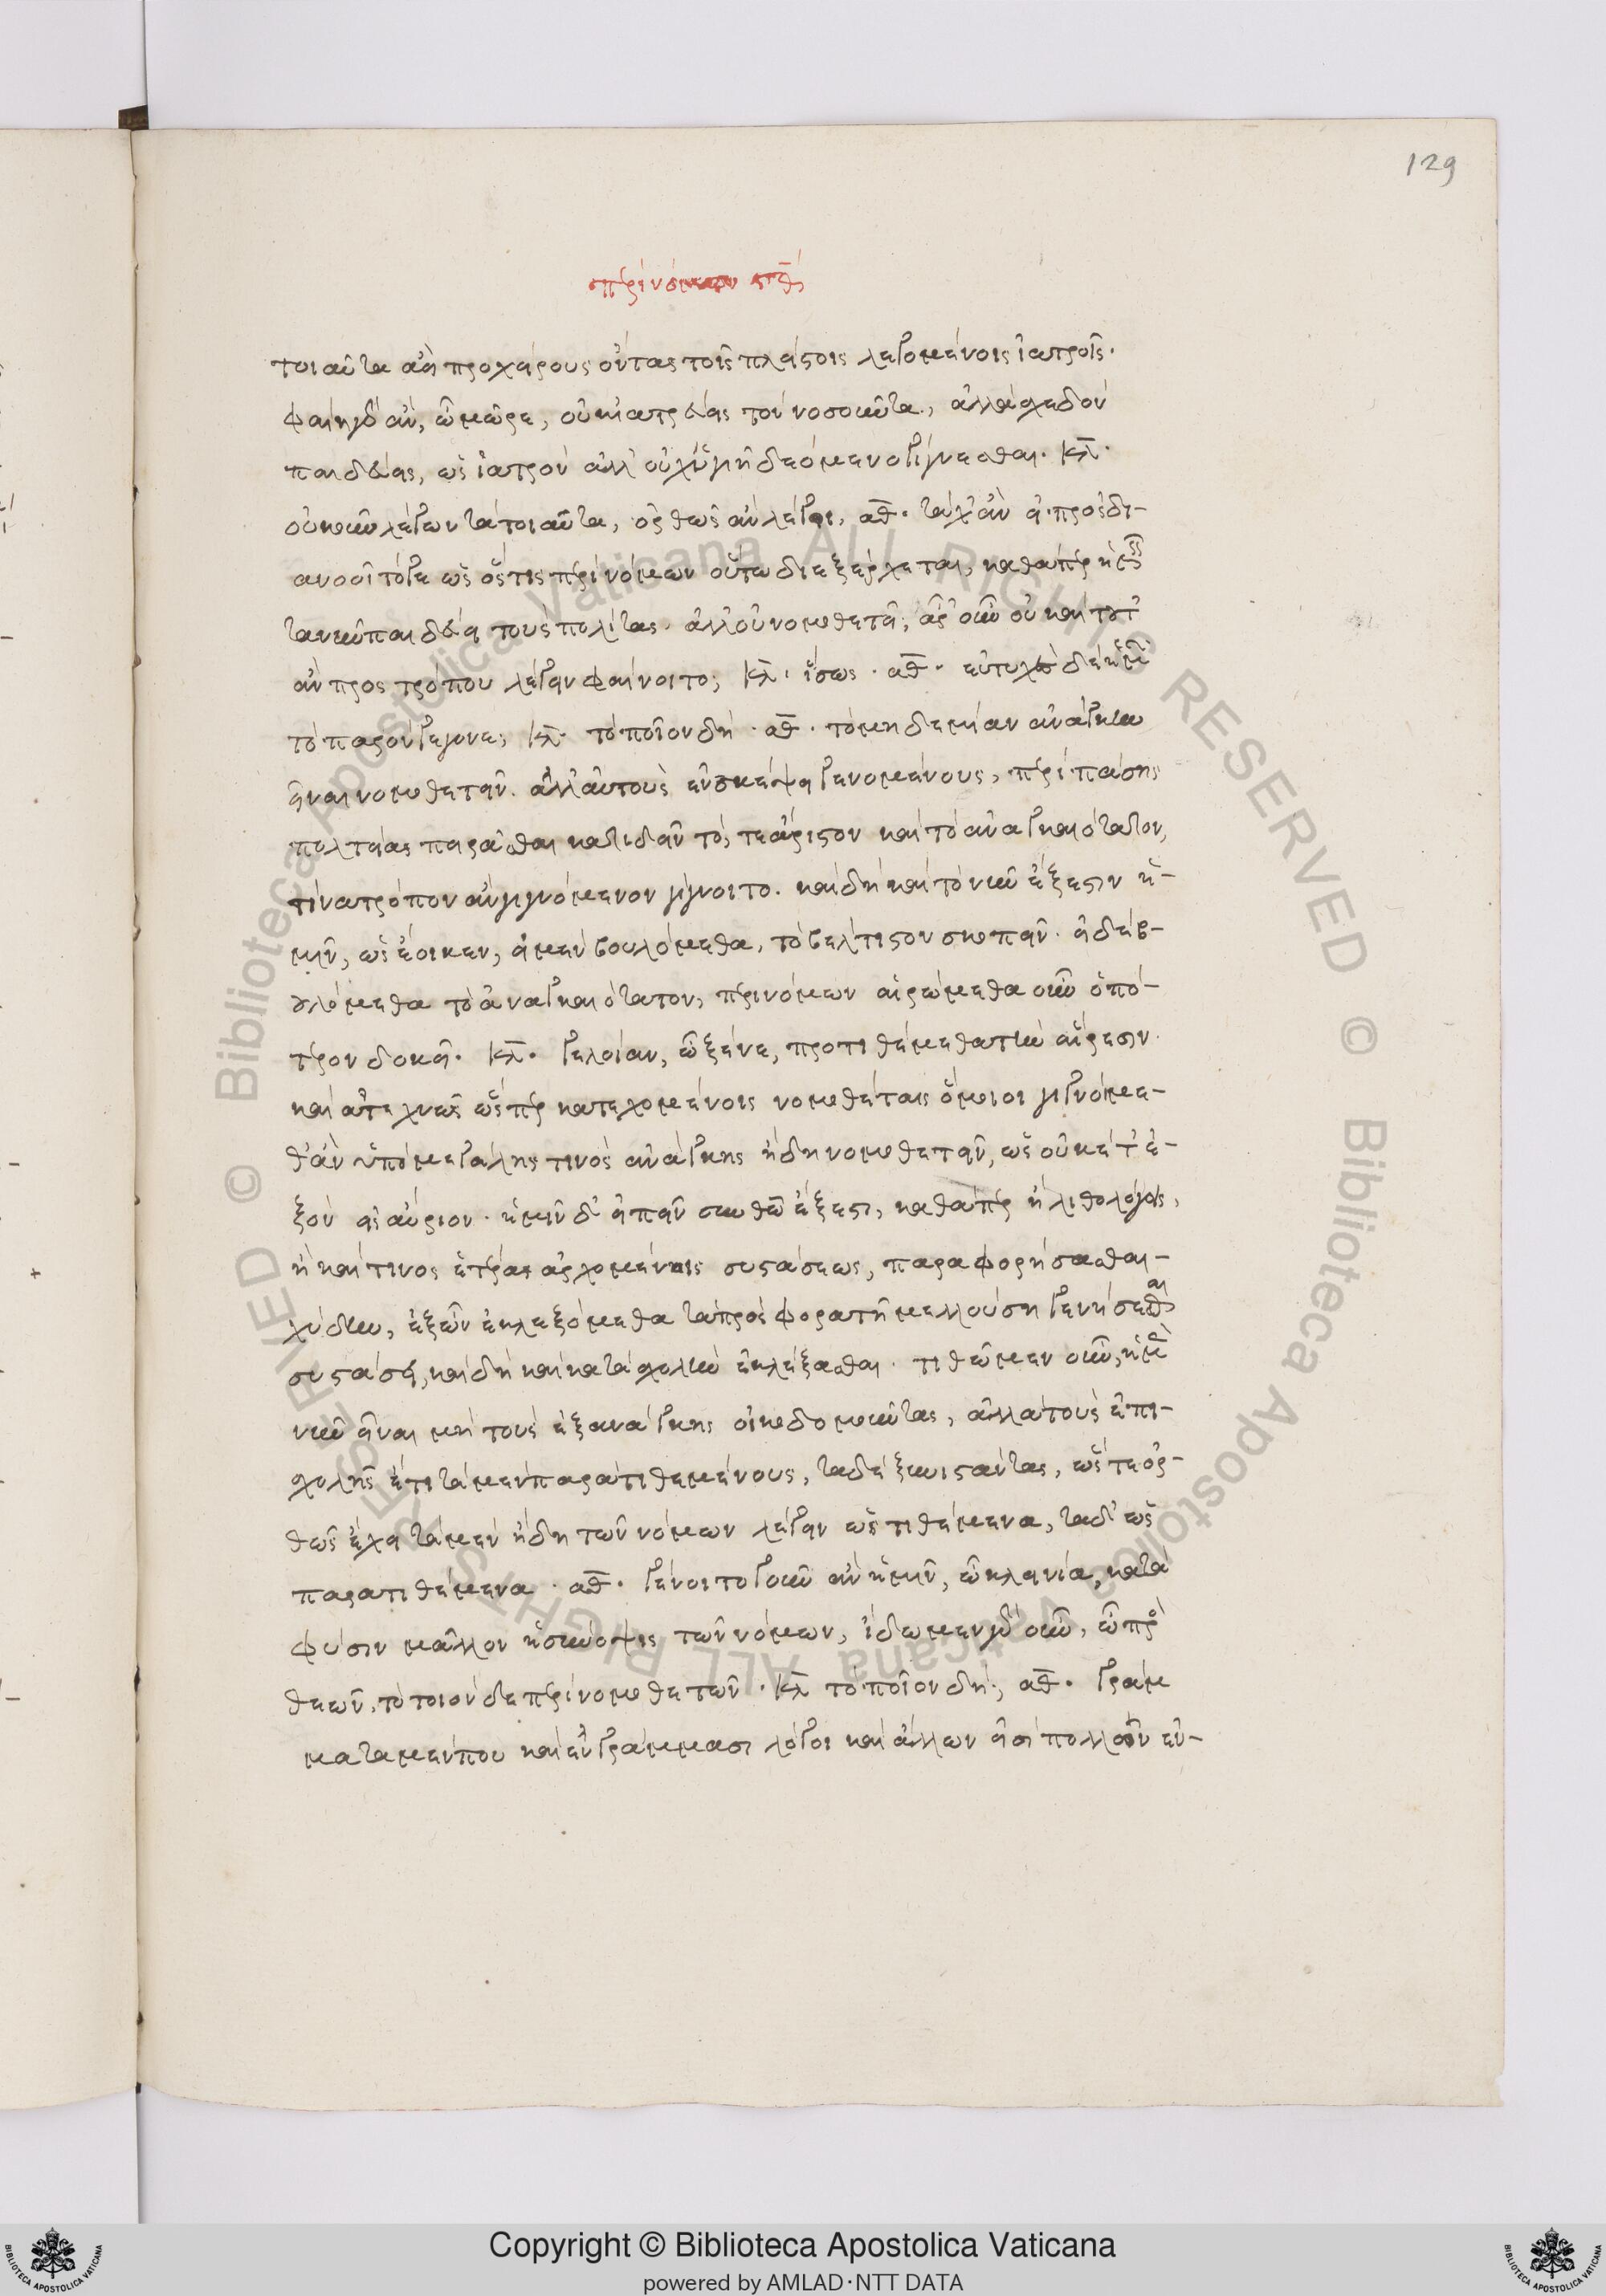 129
περὶ νόμων
τοιαῦτα ἀεὶ προχείρους ὄντας τοῖς πλείστοις λεγομένοις ἰατροῖς·
φαίη δ' ἄν, ὦ μῶρε, οὐκ ἰατρεύεις τὸν νοσοῦντα, ἀλλὰ σχεδὸν
παιδεύεις, ὡς ἰατρὸν ἀλλ' οὐχ ὑγιῆ δεόμενο γίγνεσθαι. κλ.
οὐκοῦν λέγων τὰ τοιαῦτα, ὀρθῶς ἂν λέγοι, αθ. τάχ' ἂν εἰ προσδι-
ανοοῖτό γε ὡς ὅστις περὶ νόμων οὕτω διεξέρχεται, καθάπερ ἡμεῖς
τανῦν παιδεύει τοὺς πολίτας· ἀλλ' οὐ νομοθετεῖ, ἆρ' οὖν οὐ καὶ τοῦτ'
ἂν πρὸς τρόπου λέγειν φαίνοιτο; κλ. ἴσως. αθ. εὐτυχὲς δὲ ἡμῶν
τὸ παρὸν γέγονε; κλ. τὸ ποῖον δή. αθ. τὸ μηδεμίαν ἀνάγκην
εἶναι νομοθετεῖν. ἀλλ' αὐτοὺς ἐν σκέψει γενομένους, περὶ πάσης
πολιτείας πειρᾶσθαι κατιδεῖν τό, τε ἄριστον καὶ τὸ ἀναγκαιότατον,
τίνα τρόπον ἂν γιγνόμενον γίγνοιτο. καὶ δὴ καὶ τὸ νῦν ἔξεστιν ἡ-
μῖν, ὡς ἔοικεν, εἰ μὲν βουλόμεθα, τὸ βέλτιστον σκοπεῖν· εἰ δὲ β-
ουλόμεθα τὸ ἀναγκαιότατον, περὶ νόμων αἱρώμεθα οὖν ὁπό-
τερον δοκεῖ. κλ. γελοίαν, ὦ ξένε, προτιθέμεθα τὴν αἵρεσιν.
καὶ ἀτεχνῶς ὥσπερ κατεχομένοις νομοθέταις ὅμοιοι γιγνόμε-
θ' ἂν ὑπὸ μεγάλης τινὸς ἀνάγκης ἤδη νομοθετεῖν, ὡς οὐκέτ' ἐ-
ξὸν εἰς αὔριον. ἡμῖν δ' εἰπεῖν σὺν θεῷ ἔξεστι, καθάπερ ἢ λιθολόγοις,
ἢ καί τινος ἑτέρας ἀρχομένοις συστάσεως, παραφορήσασθαι
χύδην, ἐξ ὧν ἐκλεξόμεθα τὰ πρόσφορα τῇ μελλούσῃ γενήσεσθαι
συστάσει, καὶ δὴ καὶ κατὰ σχολὴν ἐκλέξασθαι. τιθῶμεν οὖν, ἡμᾶς
νῦν εἶναι μὴ τοὺς ἐξ ἀνάγκης οἰκοδομοῦντας, ἀλλὰ τοὺς ἐπὶ
σχολῆς ἔτι τὰ μὲν παρατιθεμένους, τὰ δὲ ξυνιστάντας, ὥστε ὀρ-
θῶς ἔχει τὰ μὲν ἤδη τῶν νόμων λέγειν ὡς τιθέμενα, τὰ δ' ὡς
παρατιθέμενα. αθ. γένοιτο γοῦν ἂν ἡμῖν, ὦ κλεινία, κατὰ
φύσιν μᾶλλον ἡ σύνοψις τῶν νόμων, ἴδωμεν γὰρ οὖν, ὦ πρὸς
θεῶν, τὸ τοιόνδε περὶ νομοθετῶν. κλ τὸ ποῖον δή; αθ. γράμ
ματα μέν που καὶ ἐν γράμμασι λόγοι καὶ ἄλλων εἰσὶ πολλῶν ἐν